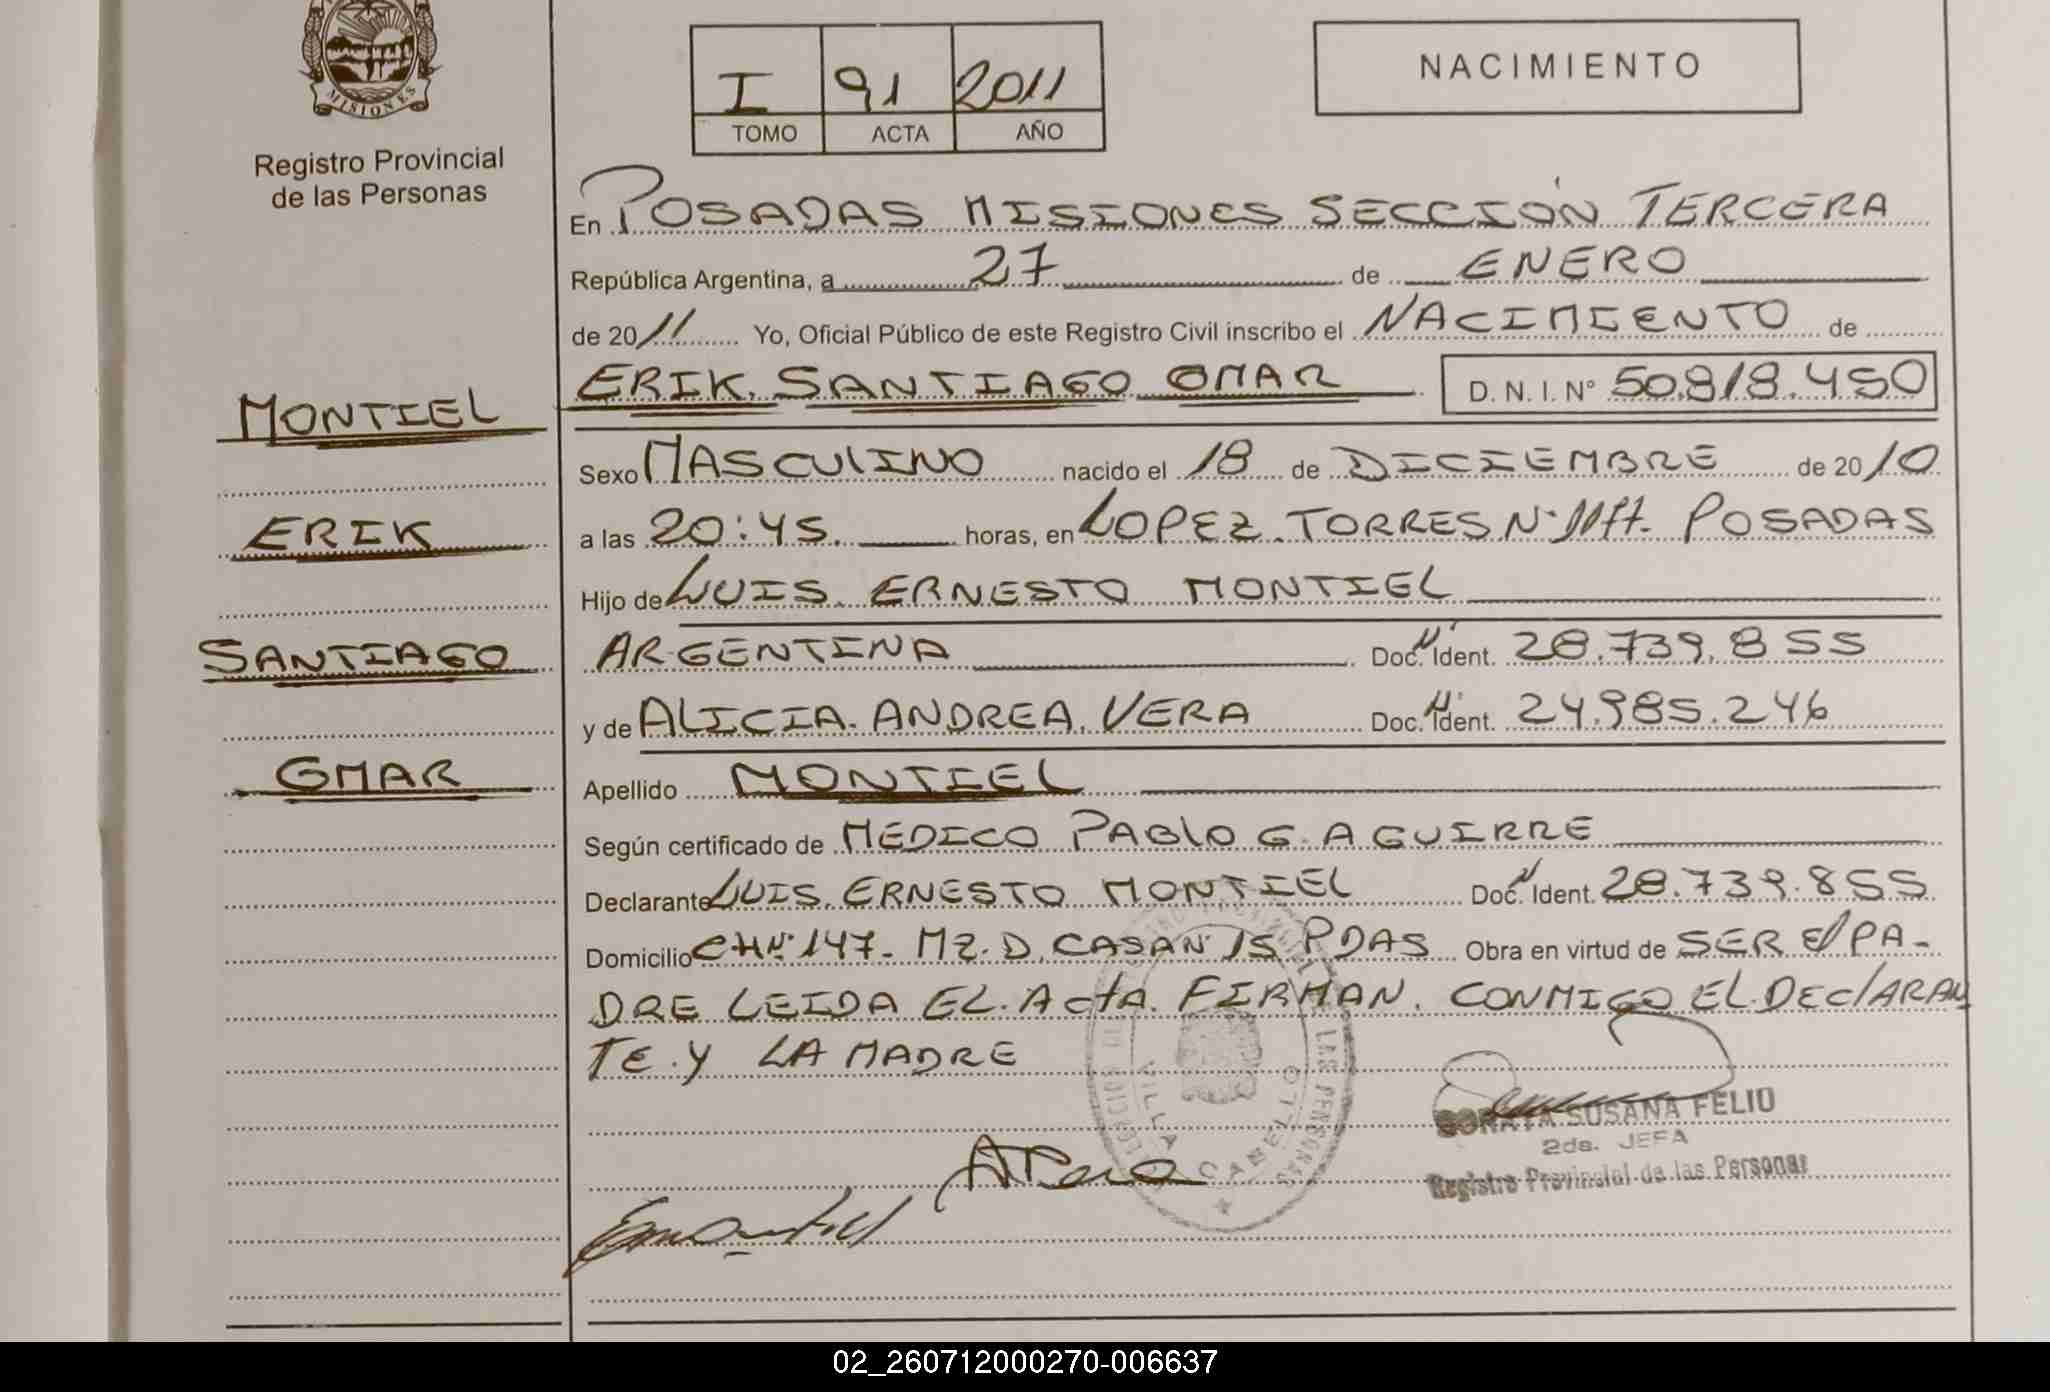 MISIONES
Registro Provincial
de las Personas
I 91 2011
TOMO ACTA AÑO
NACIMIENTO
En POSADAS MISIONES SECCIÓN TERCERA
República Argentina, a 27 de ENERO
de 2011 Yo, Oficial Público de este Registro Civil inscribo el NACIMIENTO de
ERIK. SANTIAGO OMAR D. N. I. N° 50.818.450
MONTIEL
ERIK
SANTIAGO
OMAR
Sexo MASCULINO nacido el 18 de DICIEMBRE de 2010
a las 20:45. horas, en LOPEZ. TORRES N° POSADAS
Hijo de LUIS. ERNESTO MONTIEL
ARGENTINA Doc. Ident. 28.739.855
y de ALICIA. ANDREA. VERA Doc. Ident. 24.985.246
Apellido MONTIEL
Según certificado de MEDICO PABLO G. AGUIRRE
Declarante LUIS. ERNESTO MONTIEL Doc. Ident. 28.739.855
Domicilio CHN° 147. MZ. D. CASA N° 15 PDAS Obra en virtud de SER El PA-
DRE LEIDA EL. Acta. FIRMAN. CONMIGO EL DEClARAN
TE. Y LA MADRE
VILLA CABELLO
SUSANA FELIU
2da. JEFA
Registro Provincial de las Personas
02_260712000270-006637